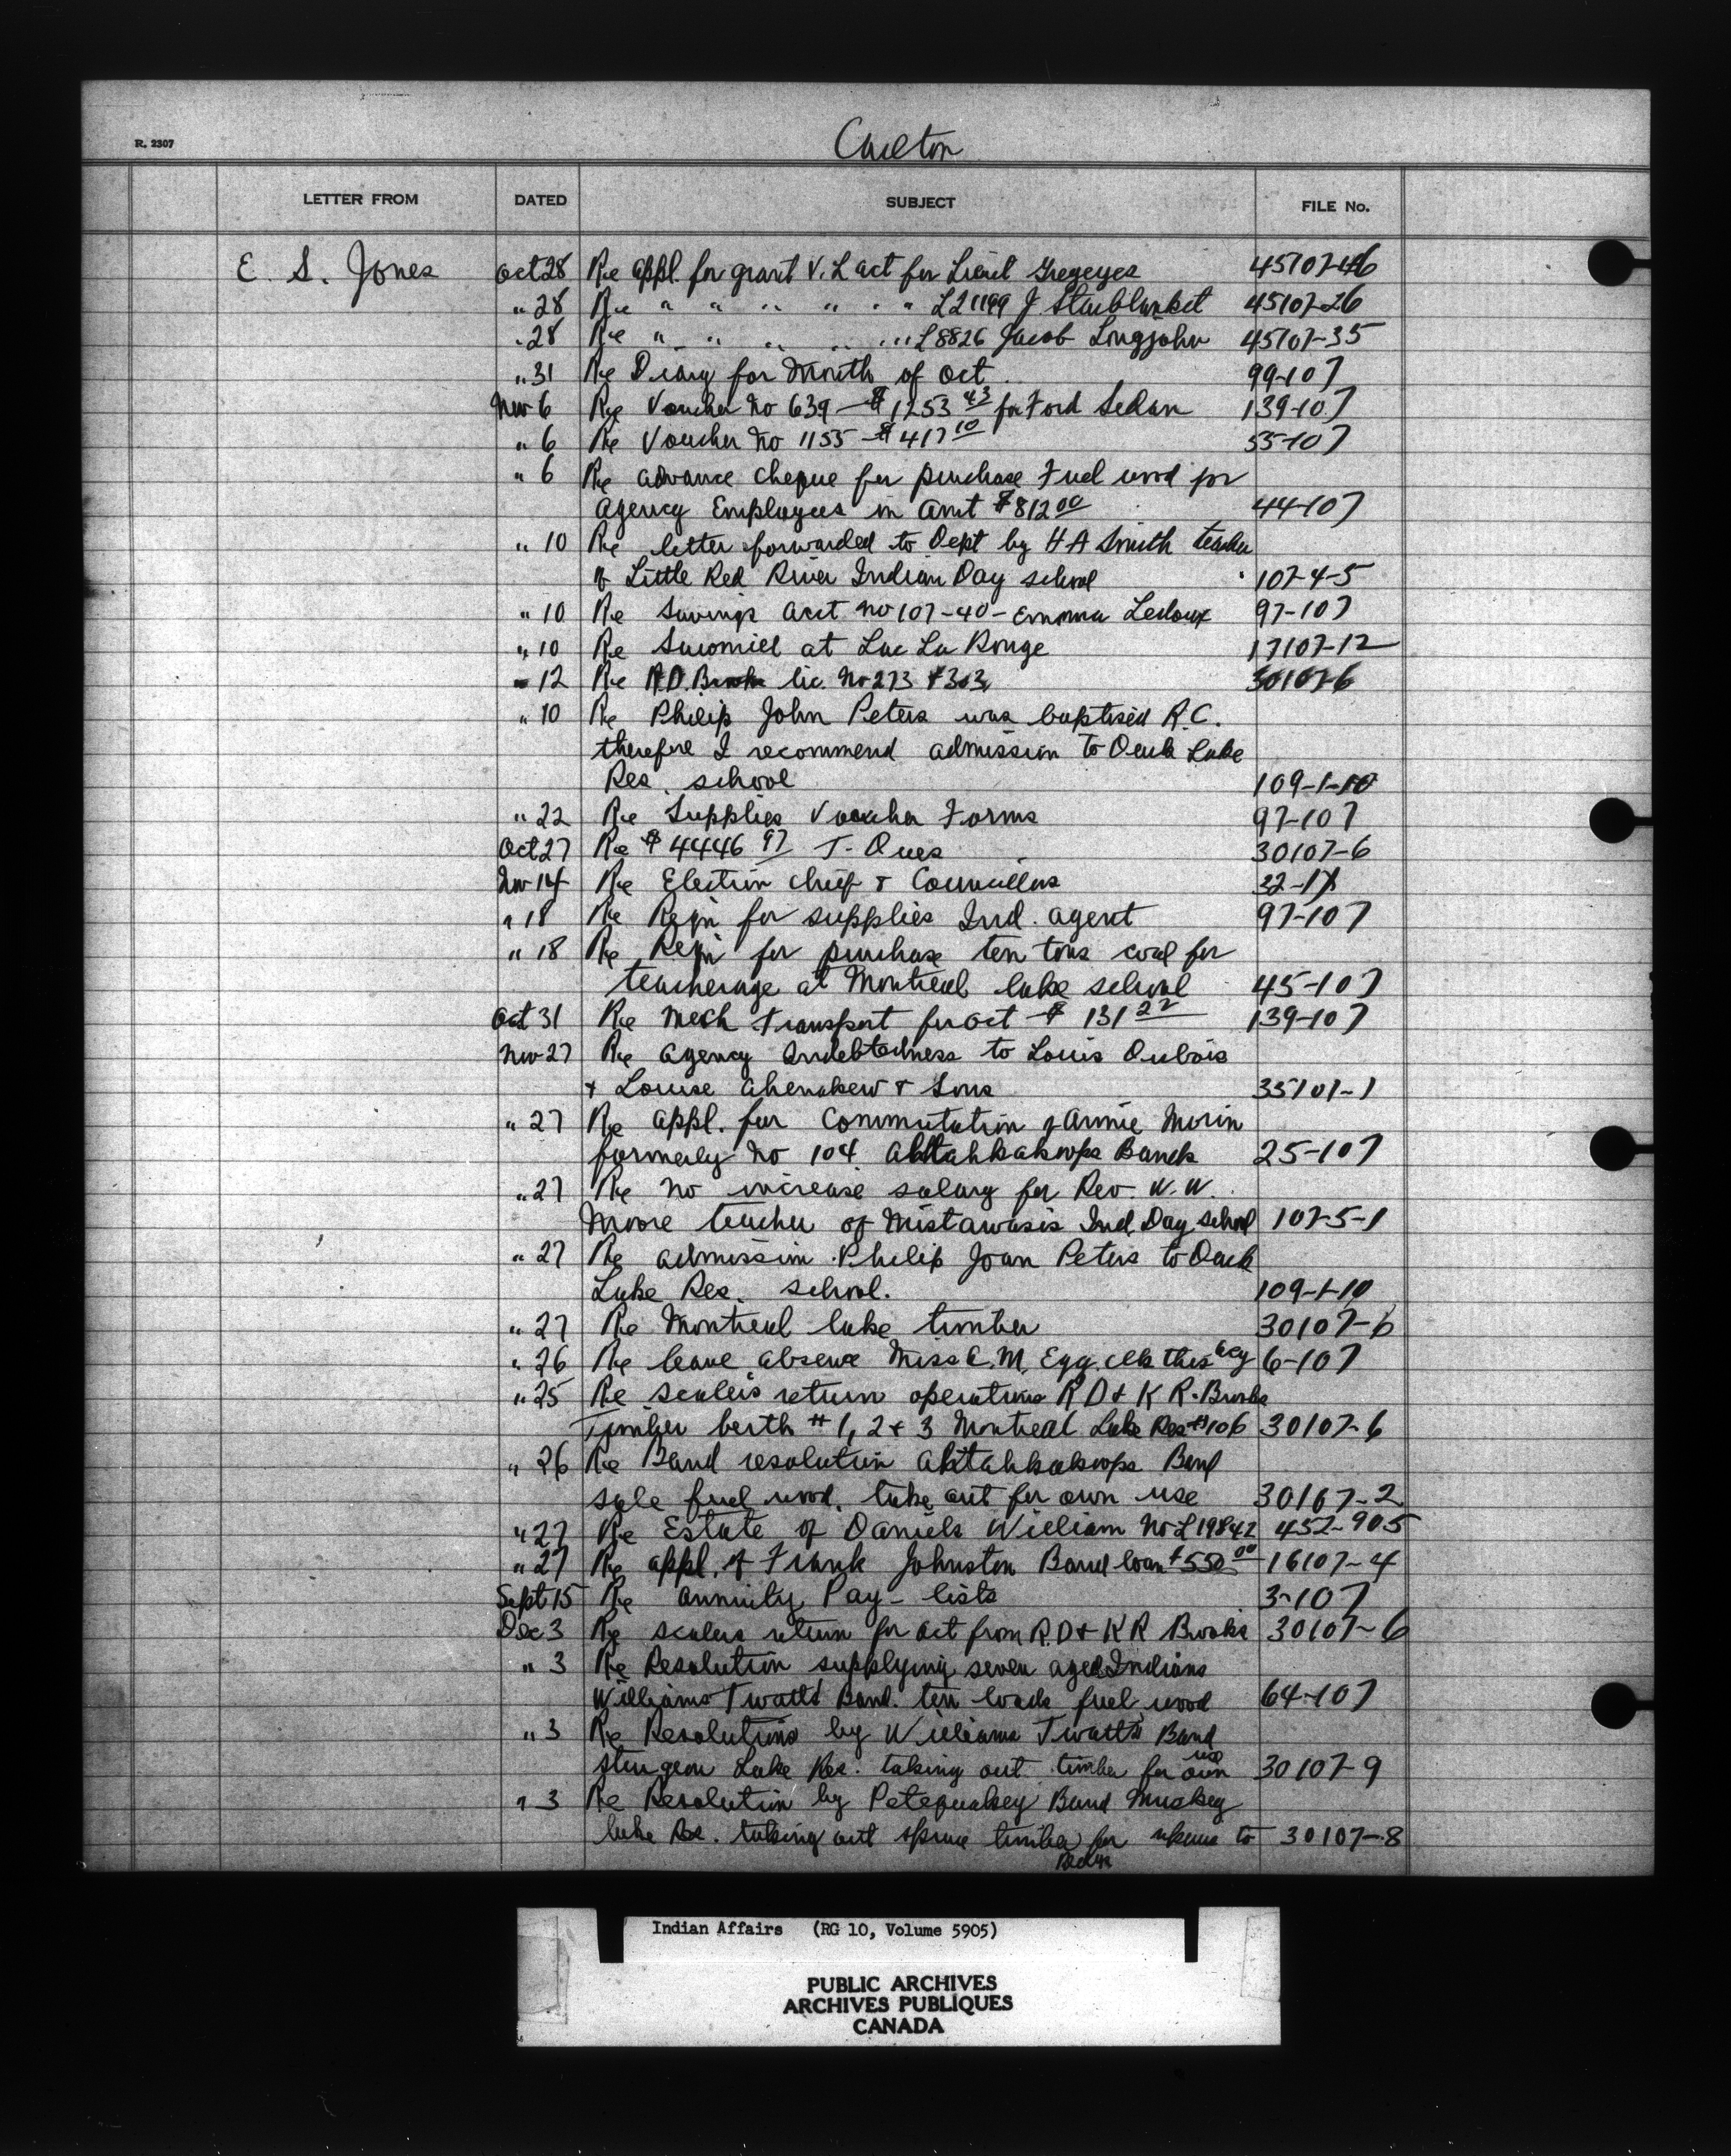 R. 2307
Carlton
LETTER FROM DATED SUBJECT FILE No.
E. S. Jones Oct 28 Re appl. for grant V. L act for Lieut Greyeyes 45107-46
" 28 Re " " " " " " L21199 J Starblanket 45107-26
" 28 Re " " " " " " L8826 Jacob Longjohn 45107-35
" 31 Re Diary for Month of Oct 99-107
Nov 6 Re Voucher No 639 - $1253 43 for Ford Sedan 139-107
" 6 Re Voucher No 1155 - $417 10 55-107
" 6 Re advance cheque for purchase Fuel wood for
Agency Employees in amt $812 00 44-107
" 10 Re letter forwarded to Dept by H A Smith teacher
of Little Red River Indian Day school 107-4-5
" 10 Re Savings acct no 107-40 - Emma Ledoux 97-107
" 10 Re Sawmill at Lac La Ronge 17107-12
" 12 Re R.D. Brooks lic. No 273 & 303 30107-6
" 10 Re Philip John Peters was baptised R.C.
therefore I recommend admission to Duck Lake
Res. school 109-1-10
" 22 Re Supplies Voucher Forms 97-107
Oct 27 Re $4446 97 T- Dues 30107-6
Nov 14 Re Election chief & Councillors 32-17
" 18 Re Reqn for supplies Ind. agent 97-107
" 18 Re Reqn for purchase ten tons coal for
teacherage at Montreal lake school 45-107
Oct 31 Re Mech Transport for Oct - $ 131 22 139-107
Nov 27 Re Agency Indebtedness to Louis Dubois
& Louise Ahenakew & Sons 35107-1
" 27 Re appl. for Commutation of Annie Morin
formerly No 104 Ahtahkakoops Bands 25-107
" 27 Re No increase salary for Rev. W. W.
Moore teacher of Mistawasis Ind. Day school 107-5-1
" 27 Re admission Philip Joan Peters to Duck
Lake Res. school. 109-1-10
" 27 Re Montreal lake timber 30107-6
" 26 Re leave absence Miss E. M. Egg, clk this Agy 6-107
" 25 Re scalers return operations R D & K R. Brooks
Timber berth # 1, 2 & 3 Montreal Lake Res #106 30107-6
" 26 Re Band resolution Ahtahkakoops Band
sale fuel wood, take out for own use 30107-2
" 27 Re Estate of Daniels William No L19842 452-905
" 27 Re appl. of Frank Johnston Band loan $550 00 16107-4
Sept 15 Re annuity Pay - lists 3-107
Dec 3 Re scalers return for Oct from R.D & K R Brooks 30107-6
" 3 Re Resolution supplying seven aged Indians
Williams Twatts Band. ten loads fuel wood 64-107
" 3 Re Resolutions by Williams Twatts Band
Sturgeon Lake Res. taking out timber for own use 30107-9
" 3 Re Resolution by Petequakey Band Muskeg
lake Res. taking out spruce timber for repairs to 30107-8
Indian Affairs (RG 10, Volume 5905)
PUBLIC ARCHIVES
ARCHIVES PUBLIQUES
CANADA